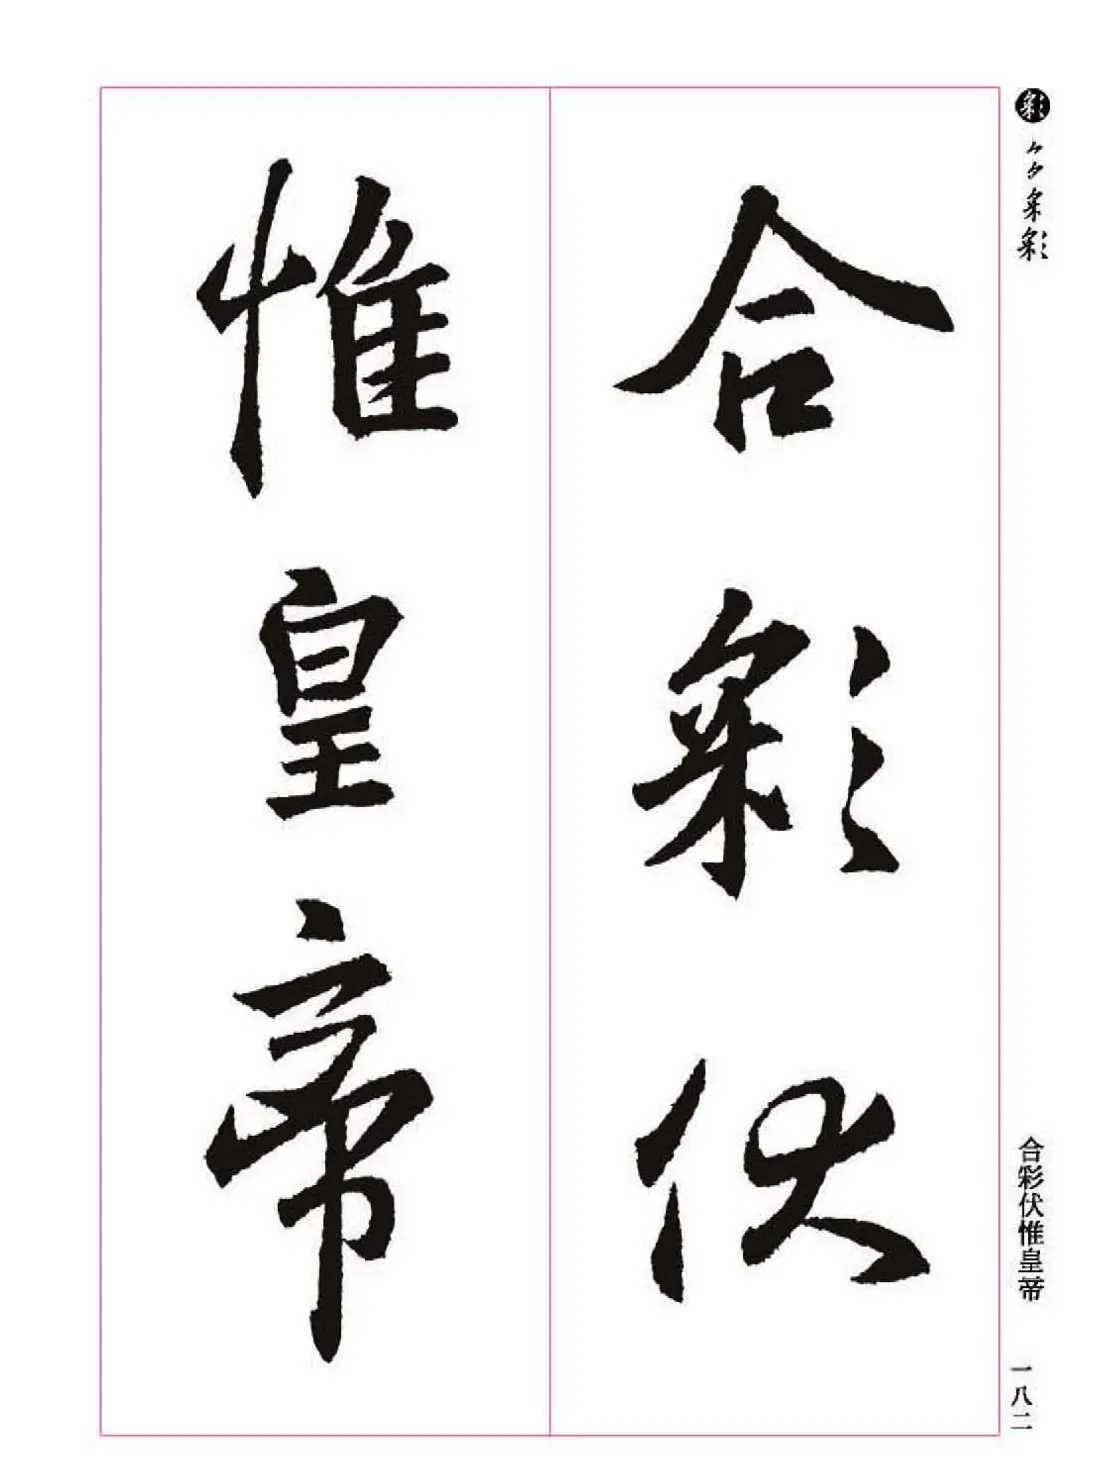 合彩伏
惟皇帝
彩
合彩伏惟皇帝
一八二